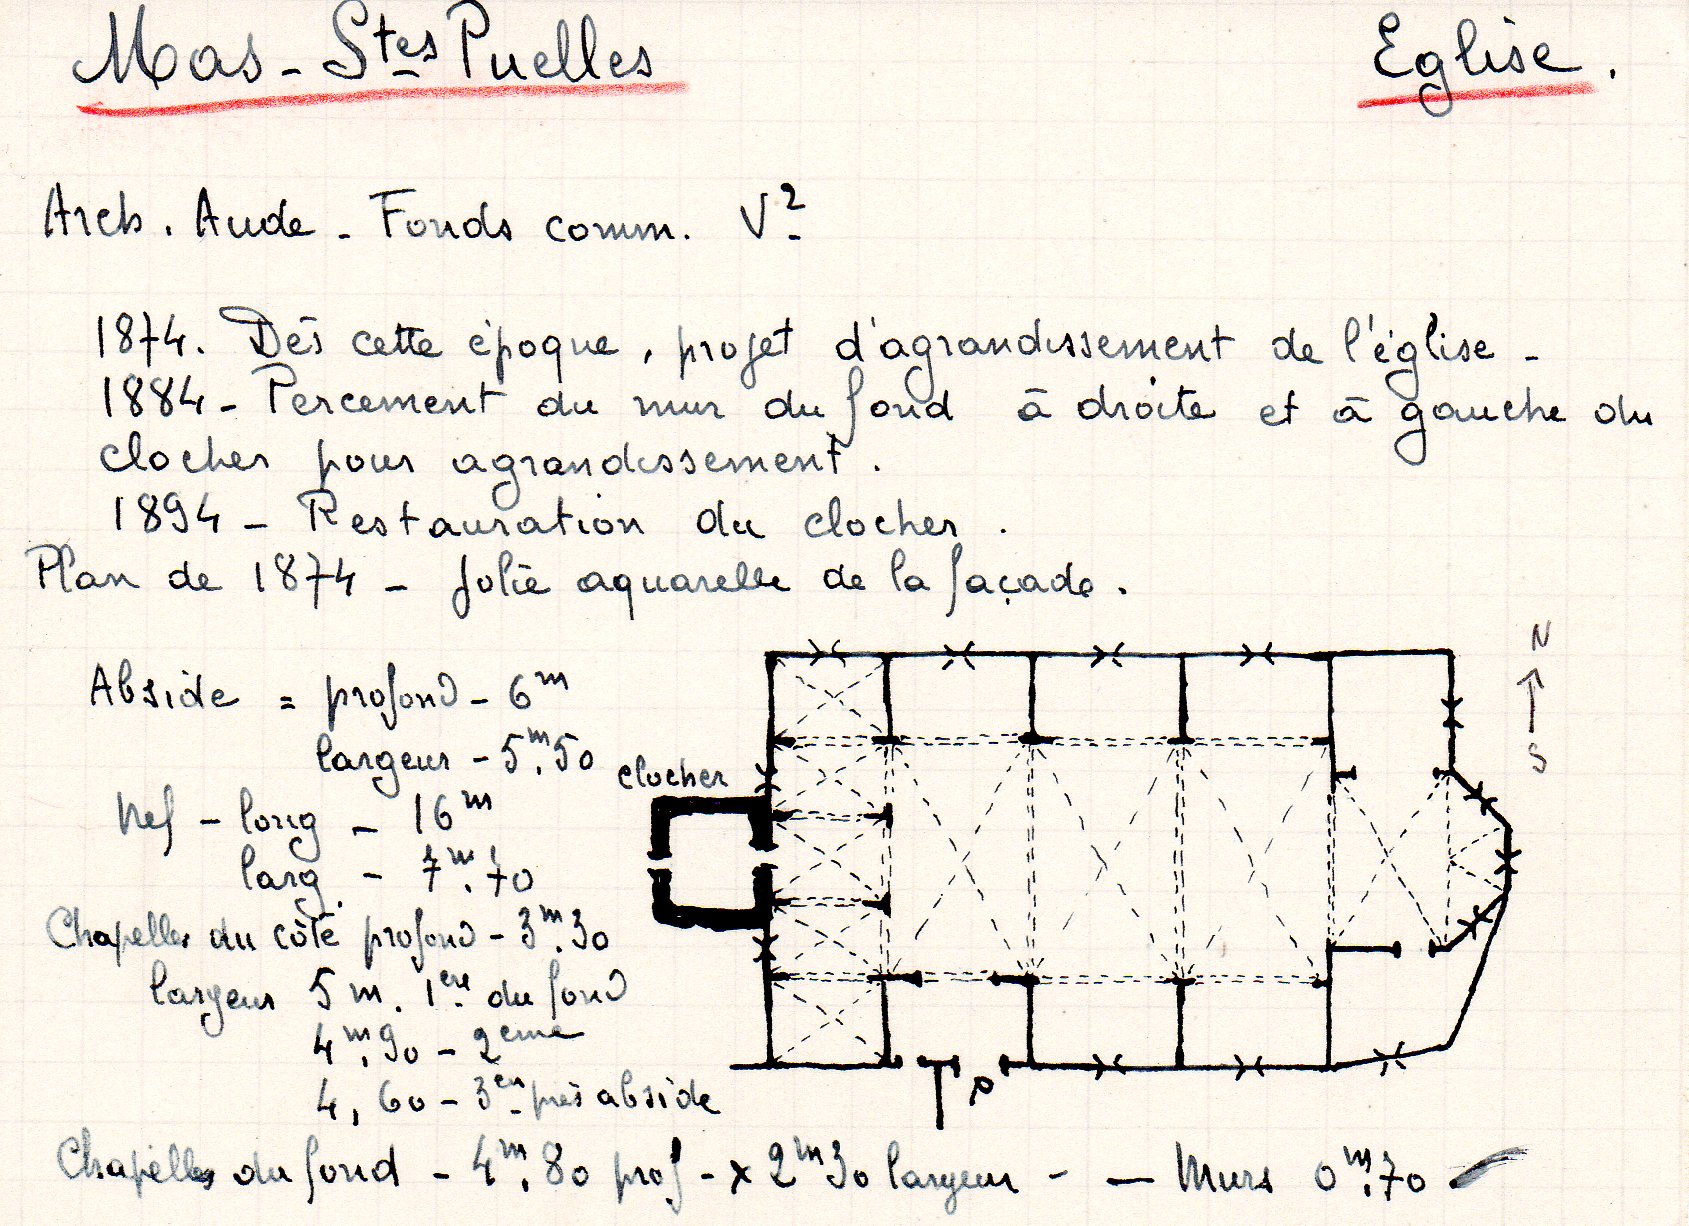 Mas - Stes Puelles
Eglise.
Arch. Aude - Fonds comm. V2
1874. Dès cette époque, projet d'agrandissement de l'église -
1884 - Percement du mur du fond à droite et à gauche du
clocher pour agrandissement.
1894 - Restauration du clocher.
Plan de 1874 - Jolie aquarelle de la façade.
N
S
Abside = profond - 6m
largeur - 5m.50
clocher
Nef - long - 16m
larg. - 7m.70
Chapelles du côté profond - 3m.30
largeur 5 m. 1ere du fond
4m.90 - 2eme
4,60 - 3e près abside
P
Chapelles du fond - 4m.80 prof - x 2m30 largeur - - Murs 0m.70